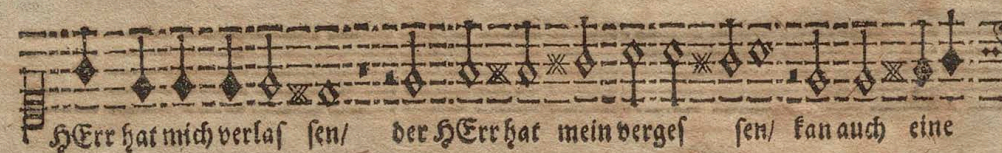 HErr hat mich verlaſ ſen/ der HErr hat mein vergeſ ſen/ kan auch eine